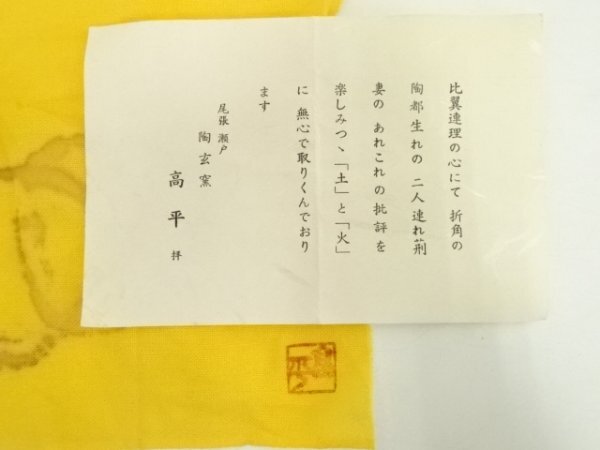 比翼連理の心にて 折角の
陶都生れの 二人連れ荊
妻の あれこれの批評を
楽しみつゝ「土」と「火」
に 無心で取りくんでおり
ます
尾張 瀬戸
陶玄窯
高平 拝